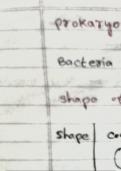 prokaryo
Bacteria
shape
shape